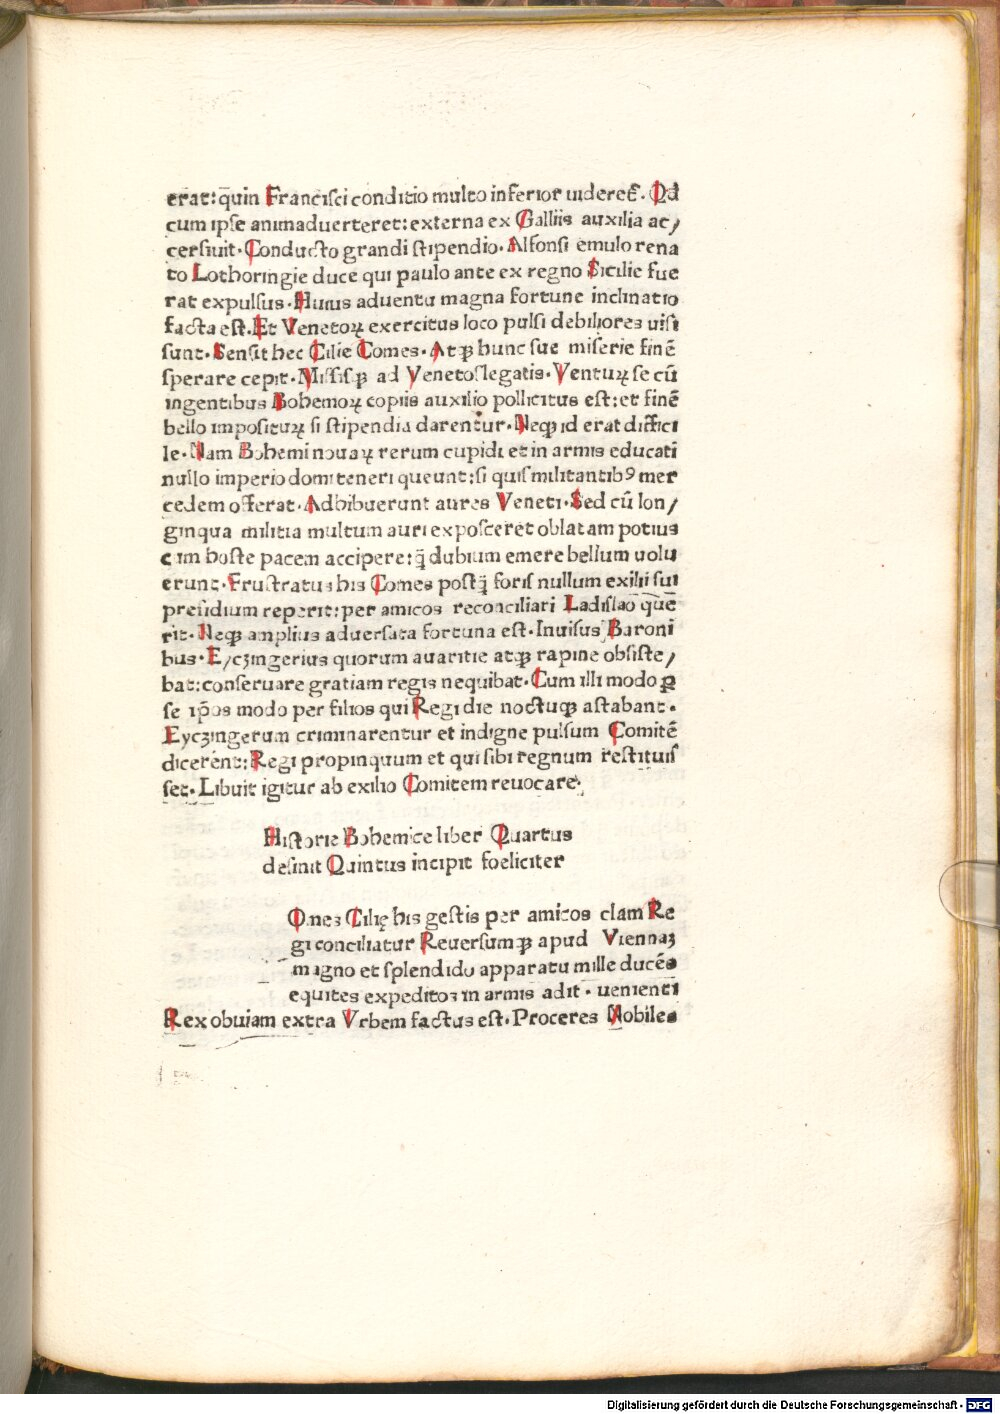 erat: q̄uin Francisci conditio multo inferior uideret̄. Qd
cum ipse animaduerteret: externa ex Galliis auxilia ac/
cersiuit. Conducto grandi stipendio. Alfonsi emulo rena
to Lothoringie duce qui paulo ante ex regno Sicilie fue
rat expulsus. Huius aduentu magna fortune inclinatio
facta est. Et Venetoꝝ exercitus loco pulsi debiliores uisi
sunt. Sensit hec Cilie Comes. Atqꝫ hunc sue miserie finē
sperare cepit. Missisqꝫ ad Venetos legatis. Ventuꝝ se cū
ingentibus Bohemoꝝ copiis auxilio pollicitus est: et finē
bello imposituꝝ si stipendia darentur. Neqꝫ id erat diffici
le. Nam Bohemi nouaꝝ rerum cupidi et in armis educati
nullo imperio domi teneri queunt: si quis militantibꝰ mer
cedem offerat. Adhibuerunt aures Veneti. Sed cū lon/
ginqua militia multum auri exposceret oblatam potius
cum hoste pacem accipere: q̄ dubium emere bellum uolu
erunt. Frustratus his Comes postq̄ foris nullum exilii sui
presidium reperit: per amicos reconciliari Ladislao quē
rit. Neqꝫ amplius aduersata fortuna est. Inuisus Baroni
bus. Eyczingerius quorum auaritie atqꝫ rapine obsiste/
bat: conseruare gratiam regis nequibat. Cum illi modo ꝑ
se ip̄os modo per filios qui Regi die noctuqꝫ astabant.
Eyczingerum criminarentur et indigne pulsum Comitē
dicerent: Regi propinquum et qui sibi regnum restituis
set. Libuit igitur ab exilio Comitem reuocare.
Historie Bohemice liber Quartus
desinit Quintus incipit foeliciter
Omes Cilię his gestis per amicos clam Re
gi conciliatur Reuersumqꝫ apud Viennaꝫ
magno et splendido apparatu mille ducēs
equites expeditos in armis adit. uenienti
Rex obuiam extra Vrbem factus est. Proceres Nobiles
Digitalisierung gefördert durch die Deutsche Forschungsgemeinschaft - DFG